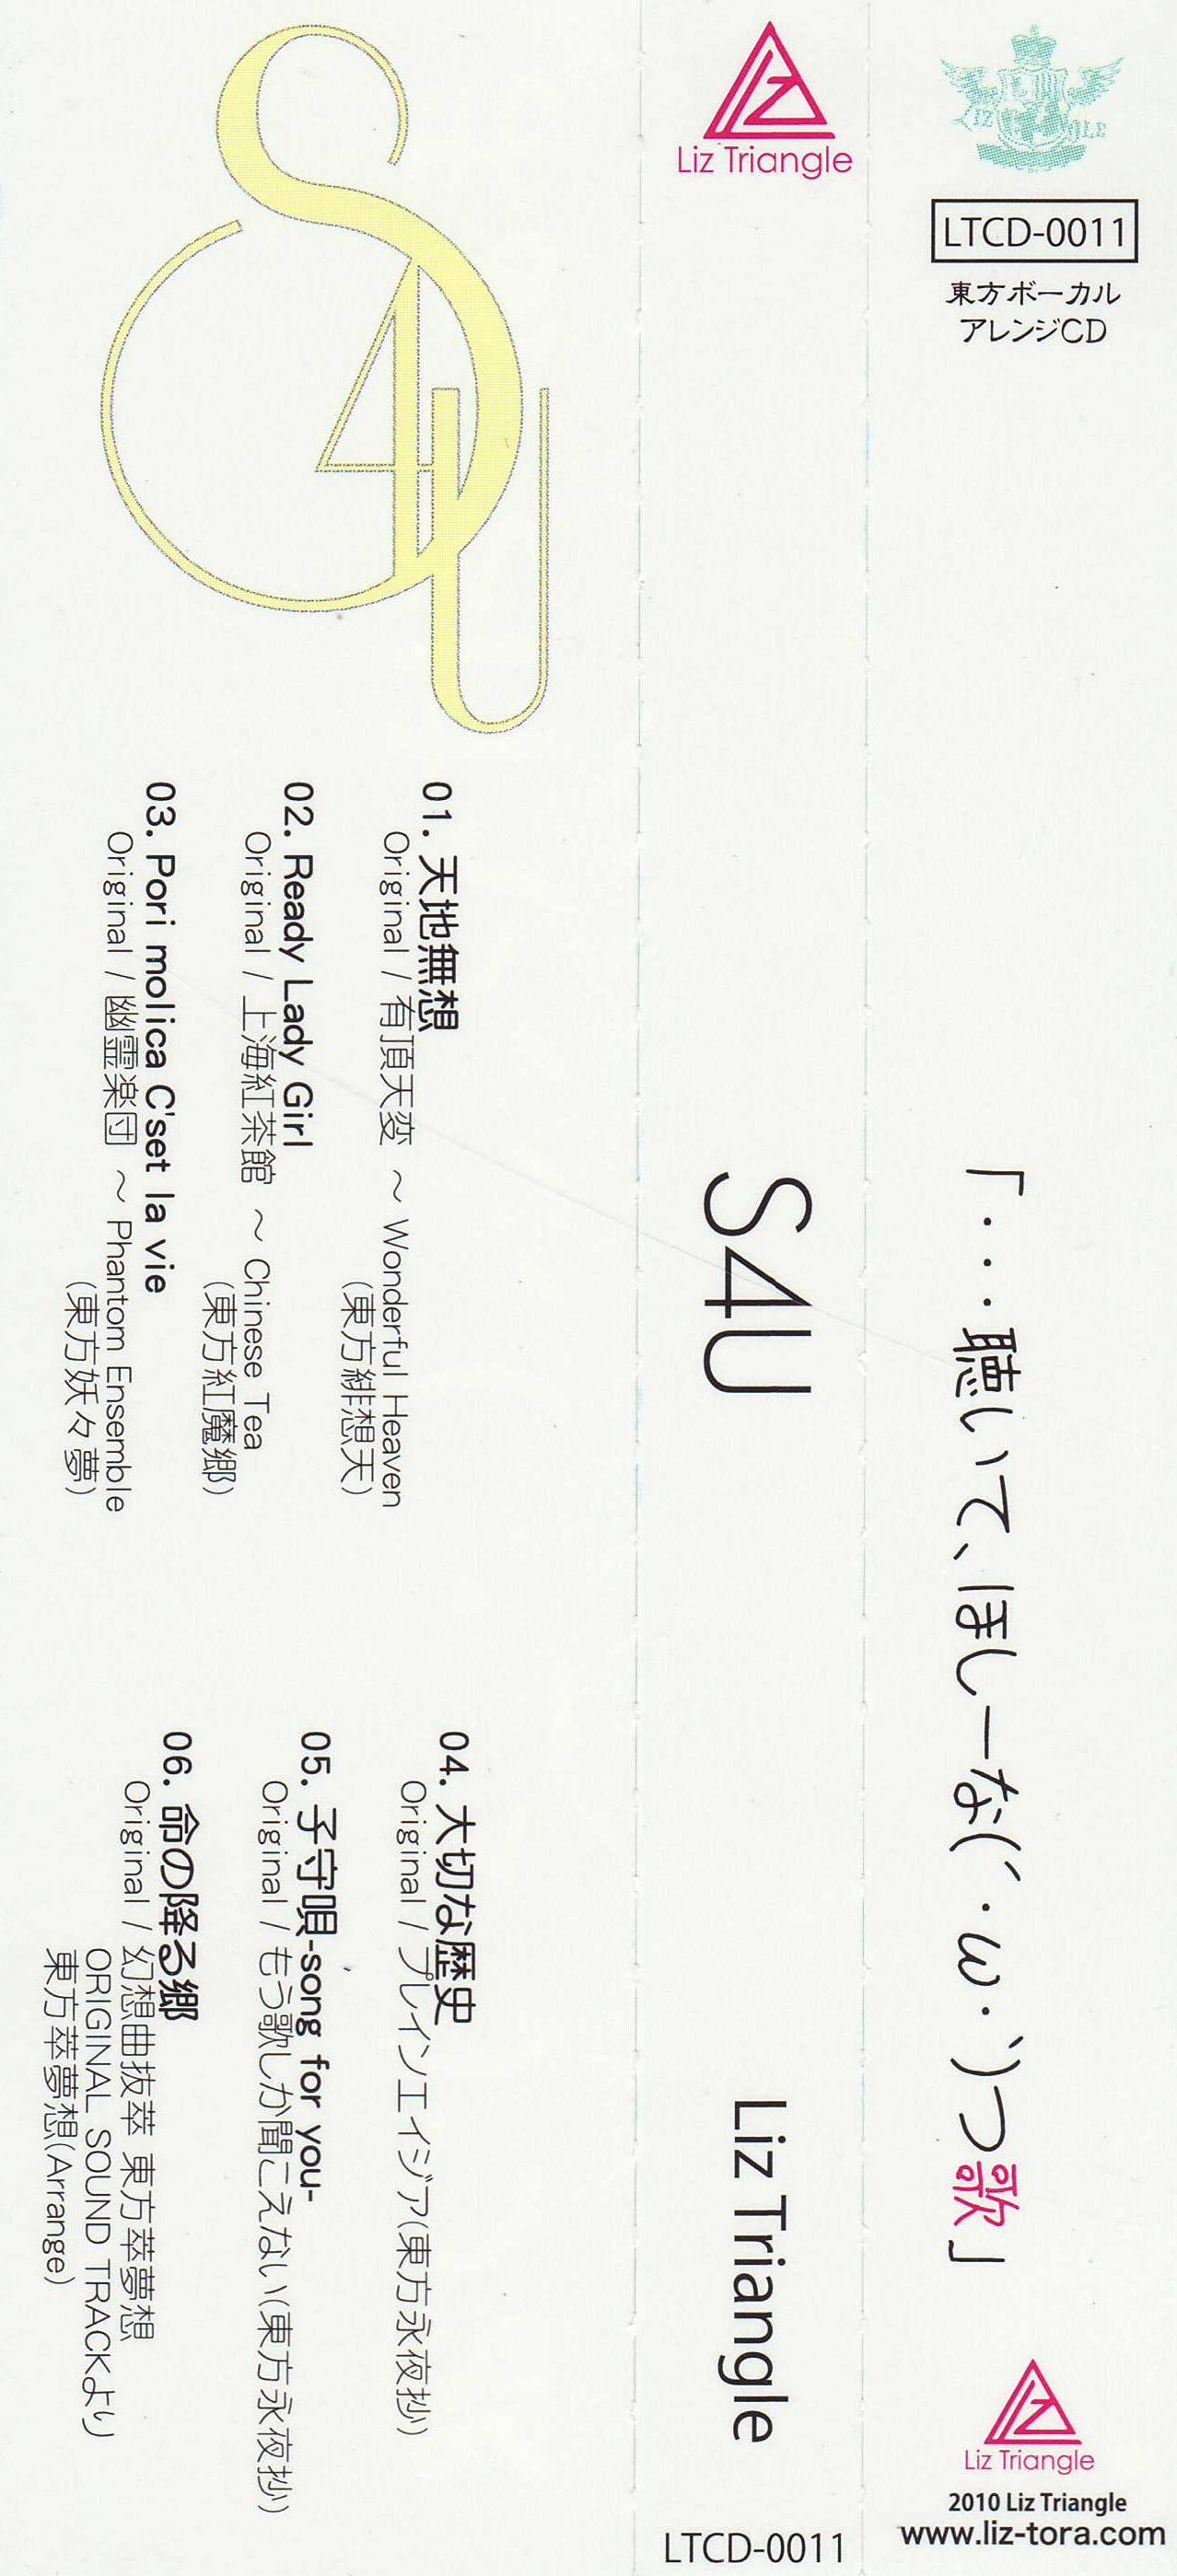 LIZ
LTCD-0011
東方ボーカル
アレンジCD
「・・・聴いて、ほしーな(´・ω・`)つ歌」
Liz Triangle
2010 Liz Triangle
www.liz-tora.com
Liz Triangle
S4U
Liz Triangle
LTCD-0011
S4U
01. 天地無想
Original / 有頂天変 ～ Wonderful Heaven
(東方緋想天)
02. Ready Lady Girl
Original / 上海紅茶館 ～ Chinese Tea
(東方紅魔郷)
03. Pori molica C'set la vie
Original / 幽霊楽団 ～ Phantom Ensemble
(東方妖々夢)
04. 大切な歴史
Original / プレインエイジア(東方永夜抄)
05. 子守唄-song for you-
Original / もう歌しか聞こえない(東方永夜抄)
06. 命の降る郷
Original / 幻想曲抜萃 東方萃夢想
ORIGINAL SOUND TRACKより
東方萃夢想(Arrange)